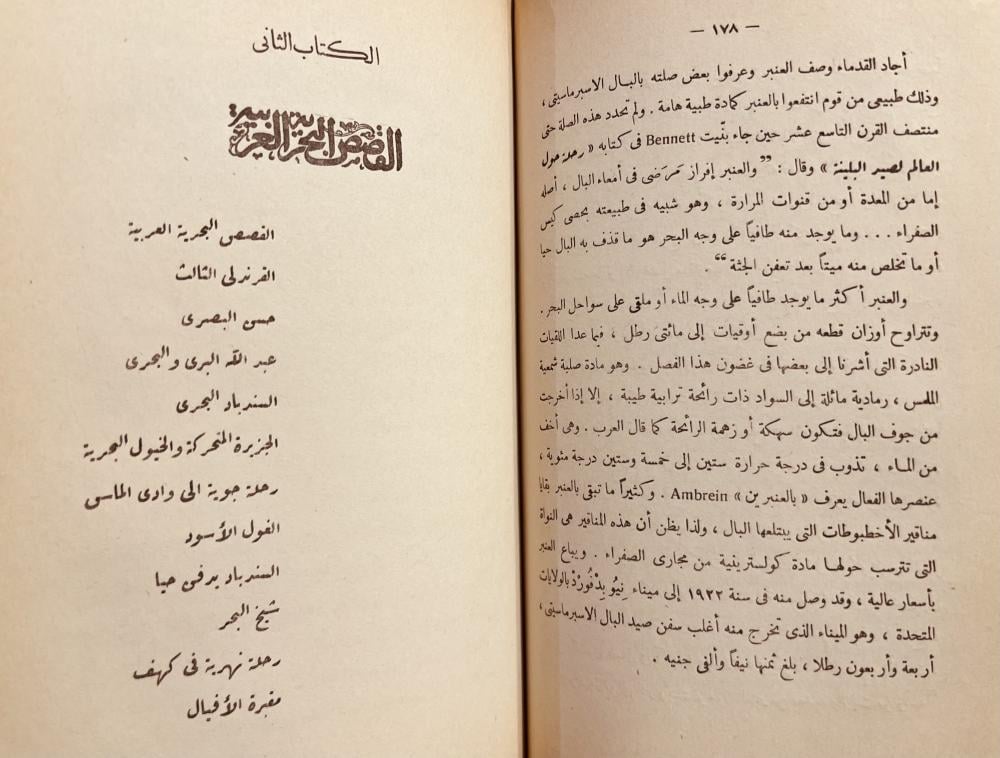 — ١٧٨ —
أجاد القدماء وصف العنبر وعرفوا بعض صلته بالبـال الاسبرماسيتى ،
وذلك طبيعى من قوم انتفعوا بالعنبر كمادة طبية هامة . ولم تحدد هذه الصلة حتى
منتصف القرن التاسع عشر حين جاء بنّيت Bennett فى كتابه « رحلة حول
العالم لصير البلينة » وقال : ”والعنبر إفراز مَرَضى فى أمعاء البال ، أصله
إما من المعدة أو من قنوات المرارة ، وهو شبيه فى طبيعته بحصى كيس
الصفراء . . . وما يوجد منه طافياً على وجه البحر هو ما قذف به البال حيا
أو ما تخلص منه ميتاً بعد تعفن الجثة “ .
والعنبر أكثر ما يوجد طافياً على وجه الماء أو ملقى على سواحل البحر .
وتتراوح أوزان قطعه من بضع أوقيات إلى مائتى رطل ، فيما عدا اللقيات
النادرة التى أشرنا إلى بعضها فى غضون هذا الفصل . وهو مادة صلبة شمعية
الملمس ، رمادية مائلة إلى السواد ذات رائحة ترابية طيبة ، إلا إذا أخرجت
من جوف البال فتكون سهكة أو زهمة الرائحة كما قال العرب . وهى أخف
من المـاء ، تذوب فى درجة حرارة ستين إلى خمسة وستين درجة مئوية ،
عنصرها الفعال يعرف « بالعنبر ين » Ambrein . وكثيراً ما تبقى بالعنبر بقايا
مناقير الأخطبوطات التى يبتلعها البال ، ولذا يظن أن هذه المناقير هى النواة
التى تترسب حولهـا مادة كولسترينية من مجارى الصفراء . ويباع العنبر
بأسعار عالية ، وقد وصل منه فى سنة ١٩٢٢ إلى ميناء نِيُو بِدْفُورْدْ بالولايات
المتحدة ، وهو الميناء الذى تخرج منه أغلب سفن صيد البال الاسبرماسيتى ،
أربعة وأربعون رطلا ، بلغ ثمنها نيفاً وألفى جنيه .
الكتاب الثانى
القصص البحرية العربية
القصص البحرية العربية
القرندلى الثالث
حسن البصرى
عبد الله البرى والبحرى
السندباد البحرى
الجزيرة المتحركة والخيول البحرية
رحلة جوية الى وادى الماس
الغول الأسود
السندباد يدفن حيا
شيخ البحر
رحلة نهرية فى كهف
مقبرة الأفيال